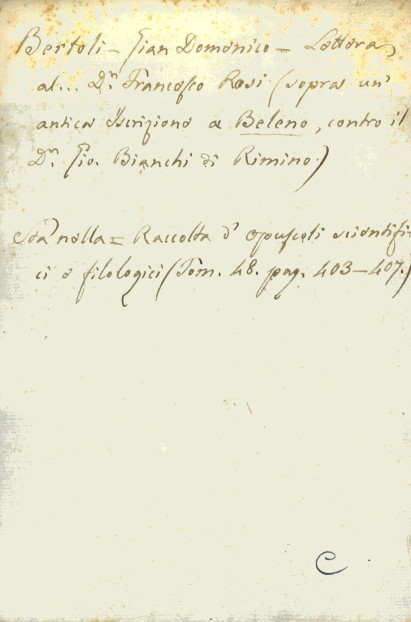 Bertoli = Gian Domenico = Lettera,
al... Dn. Francesco Rosi (sopra un'
antica Iscrizione a Beleno, contro il
Dn. Gio. Bianchi di Rimino.)
Sta nella = Raccolta d'opuscoli scientifi-
ci e filologici (Tom. 48. pag. 403-407.)
C